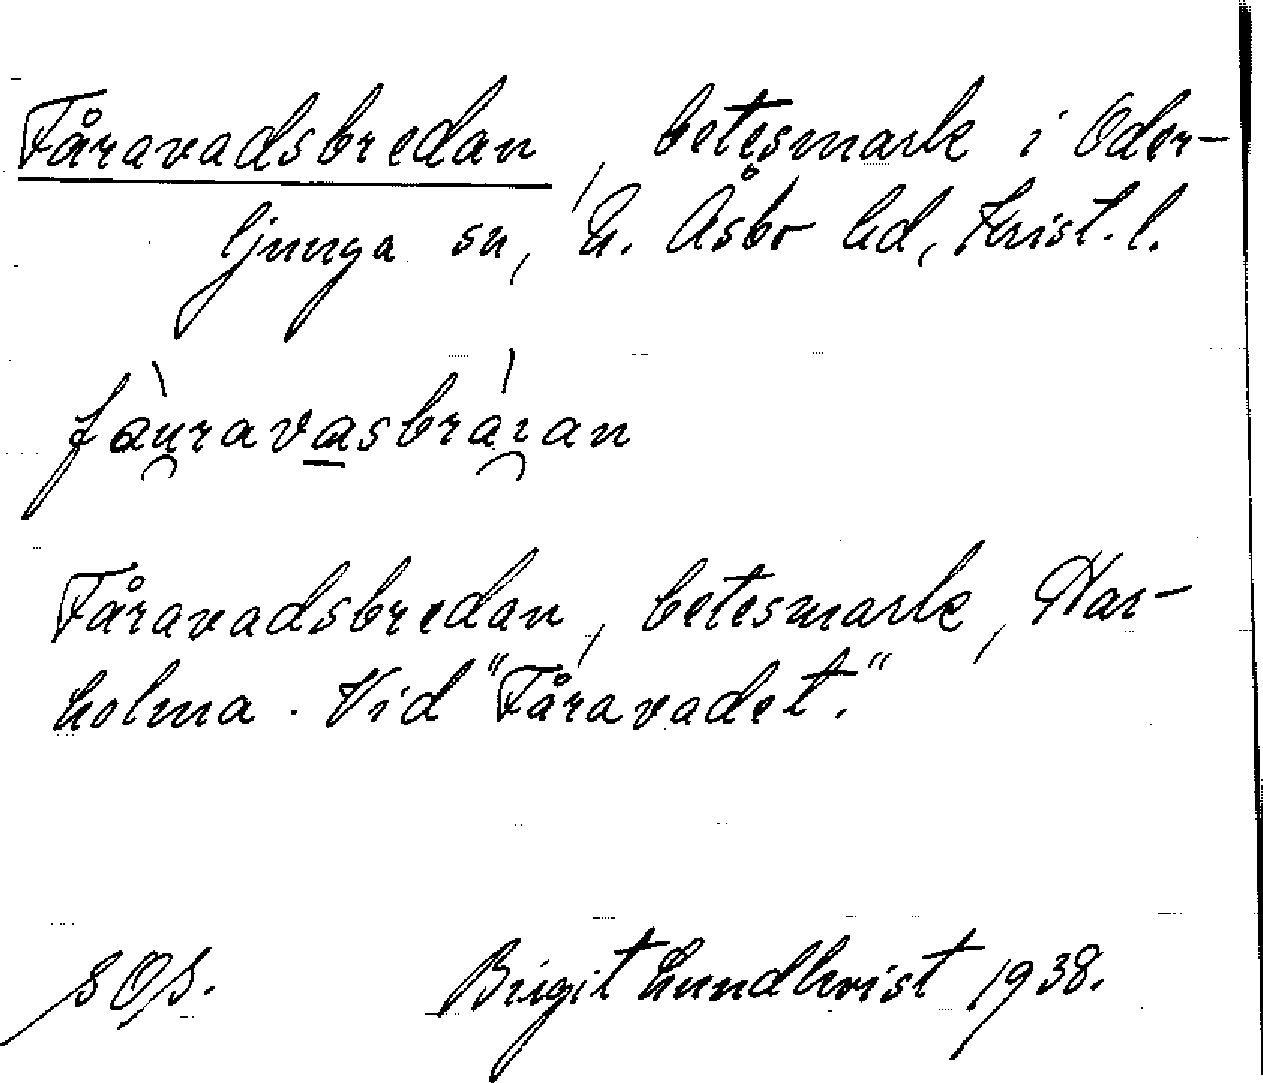 Fåravadsbredan, betesmark i Oder-
ljunga sn, N. Åsbo hd, Krist. l.
fàu̯ravasbrái̯an
Fåravadsbredan, betesmark, Har-
holma. Vid "Fåravadet."
SOS. Birgit Lundkvist 1938.